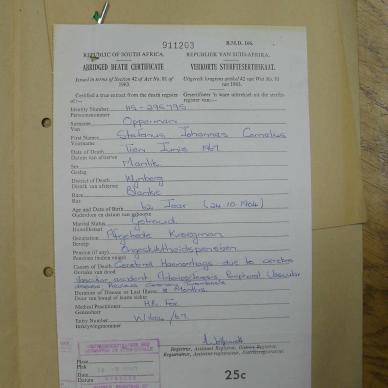 911203
B.M.D. 106.
REPUBLIC OF SOUTH AFRICA. REPUBLIEK VAN SUID-AFRIKA.
ABRIDGED DEATH CERTIFICATE VERKORTE STERFTESERTIFIKAAT.
Issued in terms of Section 42 of Act No. 81 of 1963. Uitgereik kragtens artikel 42 van Wet No. 81 van 1963.
Certified a true extract from the death register of:— Gesertifiseer 'n ware uittreksel uit die sterfteregister van:—
Identity Number
Persoonsnommer
Surname Opperman
Van
First Names Stefanus Johannes Cornelius
Voorname
Date of Death Tien Junie 1967
Datum van afsterwe
Sex Manlik
Geslag
District of Death Wynberg
Distrik van afsterwe
Race Blanke
Ras
Age and Date of Birth 62 Jaar (24.10.1904)
Ouderdom en datum van geboorte
Marital Status Getroud
Huwelikstaat
Occupation Afgetrede Kroegman
Beroep
Pension (if any) Ongeskiktheidspensioen
Pensioen (indien enige)
Causes of Death Cerebral Haemorrhage due to cerebro
Oorsake van dood vascular accident. Arteriosclerosis, Peripheral Vascular
disease Previous Coronary Thrombosis
Duration of Disease or Last Illness Months
Duur van laaste siekte
Medical Practitioner H.R. Fox
Geneesheer
Entry Number W 1200/67.
Inskrywingsnommer
Registrar, Assistant Registrar, District Registrar.
Registrateur, Assistent-registrateur, Distriksregistrateur.
Place
Plek
Date
Datum
25c